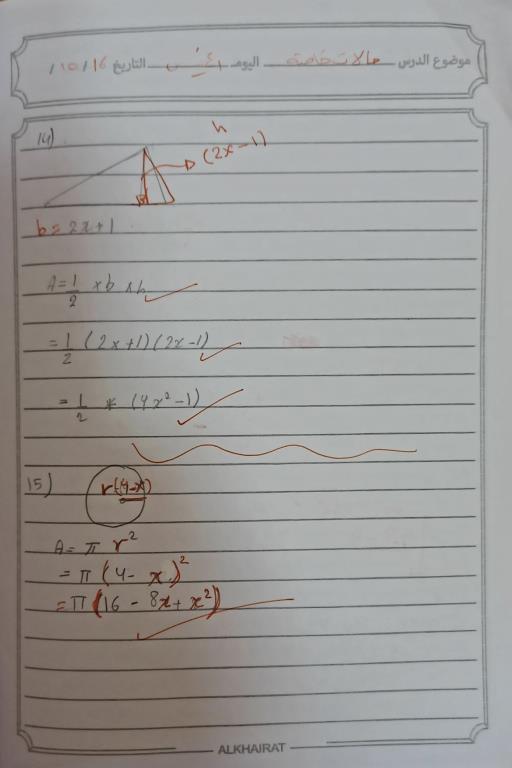 موضوع الدرس حالات خاصة اليوم الخميس التاريخ 16/10/
14)
h
(2x-1)
b = 2x+1
A = 1/2 × b × h
= 1/2 (2x+1)(2x-1)
= 1/2 * (4x²-1)
15)
r=(4-x)
A = π r²
= π (4 - x)²
= π (16 - 8x + x²)
ALKHAIRAT